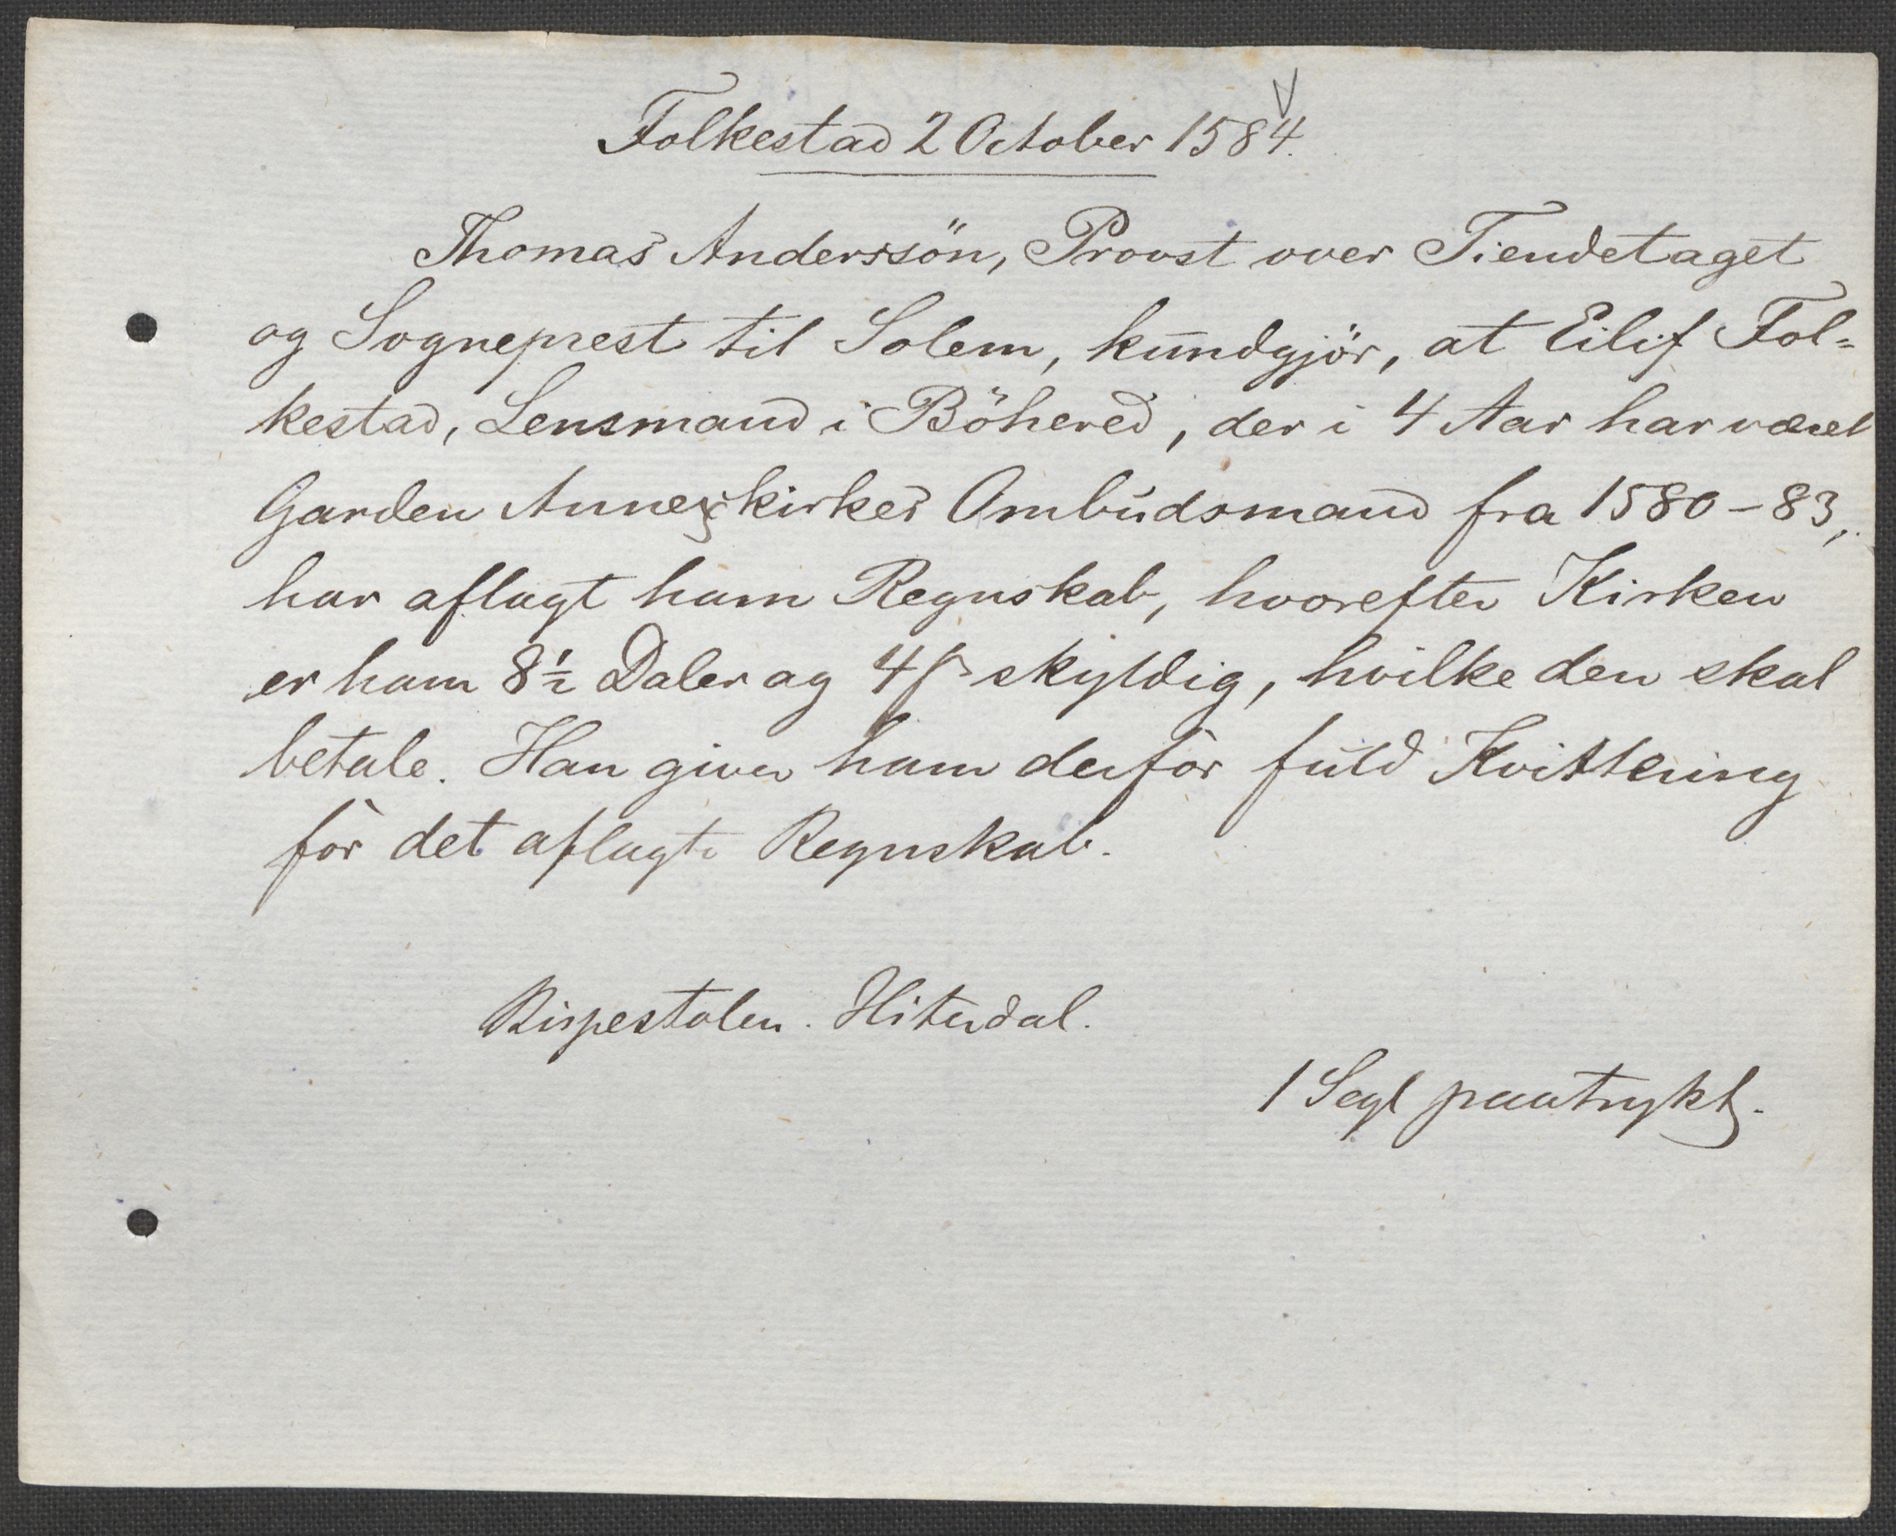 Folkestad 2 October 1584.
Thomas Anderssön, Provst over Tiendetaget
og Sogneprest til Solem, kundgjör, at Eilif Fol=
kestad, Lensmand i Böhered, der i 4 Aar har været
Garden Annexkirkes Ombudsmand fra 1580-83,
har aflagt ham Regnskab, hvorefter Kirken
er ham 8½ Daler og 4 ß skyldig, hvilke den skal
betale. Han giver ham derfor fuld Kvittering
for det aflagte Regnskab.
Bispestolen. Hiterdal.
1 Segl paatrykt.